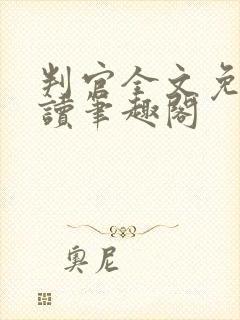 判官全文免
讀筆趣閣
奧尼